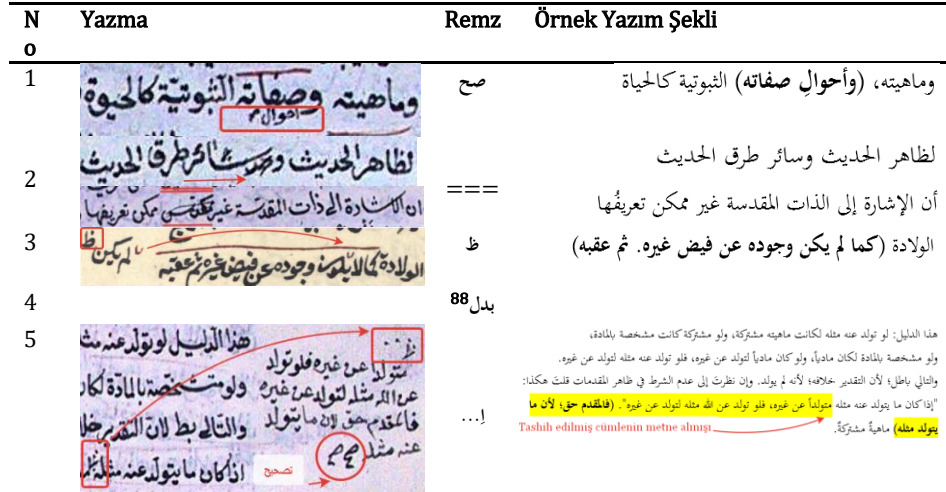 No Yazma Remz Örnek Yazım Şekli
1
وماهيته وصفاته الثبوتية كالحيوة
احوال
صح
وماهيته، (وأحوالِ صفاته) الثبوتية كالحياة
2
لظاهر الحديث وسائر طرق الحديث
ان الاشارة الى ذات المقدسة غير ممكن تعريفها
===
لظاهر الحديث وسائر طرق الحديث
أن الإشارة إلى الذات المقدسة غير ممكن تعريفُها
3
ظ
لم يكن
الولادة كما لا يكون وجوده عن فيض غيره ثم عقبه
ظ
الولادة (كما لم يكن وجوده عن فيض غيره. ثم عقبه)
4
بدل88
5
هذا الدليل لو تولد عنه
ولو مشخصة بالمادة لكان
والتالي بط لان التقدير
اذا كان ما يتولد عنه مثله
متولدا عن غيره فلو تولد
عن الله مثله لتولد عن غيره
فالمقدم حق لان ما يتولد
عنه مثله صح صح
تصحيح
اِ...
هذا الدليل: لو تولد عنه مثله لكانت ماهيته مشتركة، ولو مشتركة كانت مشخصة بالمادة،
ولو مشخصة بالمادة لكان مادياً، ولو كان مادياً لتولد عن غيره، فلو تولد عنه مثله لتولد عن غيره.
والتالي باطل؛ لأن التقدير خلافه؛ لأنه لم يولد. وإن نظرتَ إلى عدم الشرط في ظاهر المقدمات قلتَ هكذا:
"إذا كان ما يتولد عنه مثله متولداً عن غيره، فلو تولد عن الله مثله لتولد عن غيره". (فالمقدم حق؛ لأن ما
يتولد مثله) ماهيةٌ مشتركةٌ.
Tashih edilmiş cümlenin metne alınışı